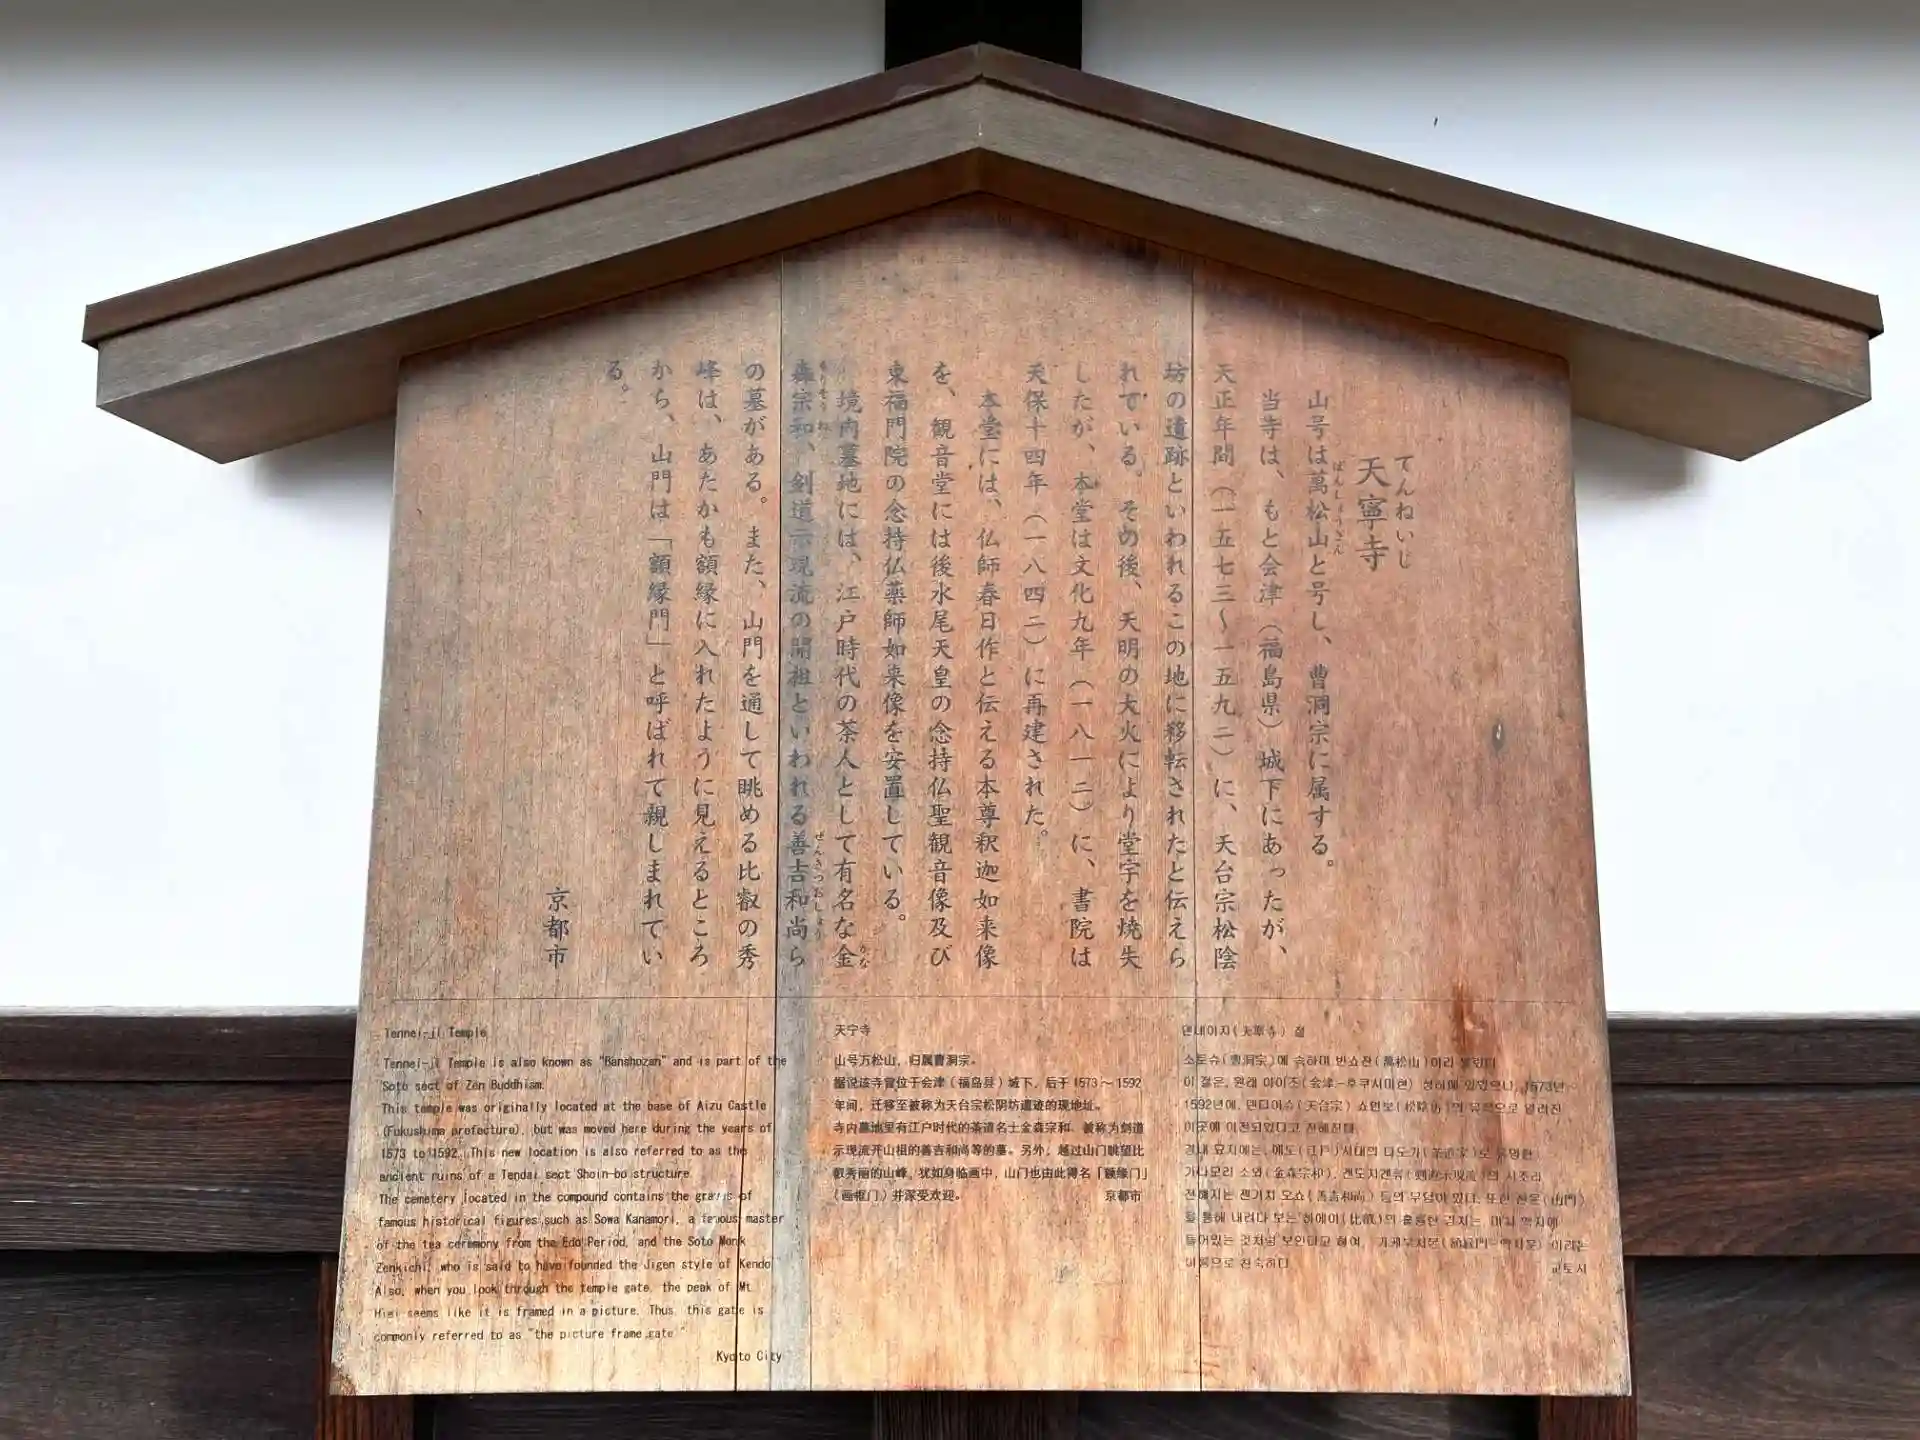 てんねいじ
天寧寺
山号は萬松山と号し、曹洞宗に属する。
ばんしょうざん
当寺は、もと会津（福島県）城下にあったが、
天正年間（一五七三～一五九二）に、天台宗松陰
坊の遺跡といわれるこの地に移転されたと伝えら
れている。その後、天明の大火により堂宇を焼失
したが、本堂は文化九年（一八一二）に、書院は
天保十四年（一八四二）に再建された。
本堂には、仏師春日作と伝える本尊釈迦如来像
を、観音堂には後水尾天皇の念持仏聖観音像及び
東福門院の念持仏薬師如来像を安置している。
境内墓地には、江戸時代の茶人として有名な金
かな
森宗和、剣道示現流の開祖といわれる善吉和尚ら
もりそうわ
ぜんきつおしょう
の墓がある。また、山門を通して眺める比叡の秀
峰は、あたかも額縁に入れたように見えるところ
から、山門は「額縁門」と呼ばれて親しまれてい
る。
京都市
Tennei-ji Temple
Tennei-ji Temple is also known as "Banshozan" and is part of the
Soto sect of Zen Buddhism.
This temple was originally located at the base of Aizu Castle
(Fukushima prefecture), but was moved here during the years of
1573 to 1592. This new location is also referred to as the
ancient ruins of a Tendai sect Shoin-bo structure.
The cemetery located in the compound contains the graves of
famous historical figures such as Sowa Kanamori, a famous master
of the tea ceremony from the Edo Period, and the Soto Monk
Zenkichi, who is said to have founded the Jigen style of Kendo.
Also, when you look through the temple gate, the peak of Mt.
Hiei seems like it is framed in a picture. Thus, this gate is
commonly referred to as "the picture frame gate."
Kyoto City
天宁寺
山号万松山，归属曹洞宗。
据说该寺曾位于会津（福岛县）城下，后于1573～1592
年间，迁移至被称为天台宗松阴坊遗迹的现地址。
寺内墓地里有江户时代的茶道名士金森宗和、被称为剑道
示现流开山祖的善吉和尚等的墓。另外，越过山门眺望比
叡秀丽的山峰，犹如身临画中，山门也由此得名「额缘门」
（画框门）并深受欢迎。
京都市
텐네이지(天寧寺) 절
소토슈(曹洞宗)에 속하며 반쇼잔(萬松山)이라 불린다.
이 절은, 원래 아이즈(会津-후쿠시마현) 성하에 있었으나, 1573년~
1592년에, 텐다이슈(天台宗) 쇼인보(松陰坊)의 유적으로 알려진
이곳에 이전되었다고 전해진다.
경내 묘지에는, 에도(江戸)시대의 다도가(茶道家)로 유명한
가나모리 소와(金森宗和), 켄도지겐류(剣道示現流)의 시조라
전해지는 젠기치 오쇼(善吉和尚) 등의 무덤이 있다. 또한 산문(山門)
을 통해 내려다 보는 히에이(比叡)의 훌륭한 경치는 마치 액자에
들어있는 것처럼 보인다고 하여, 가케부치몬(額縁門-액자문) 이라는
이름으로 친숙하다.
교토시